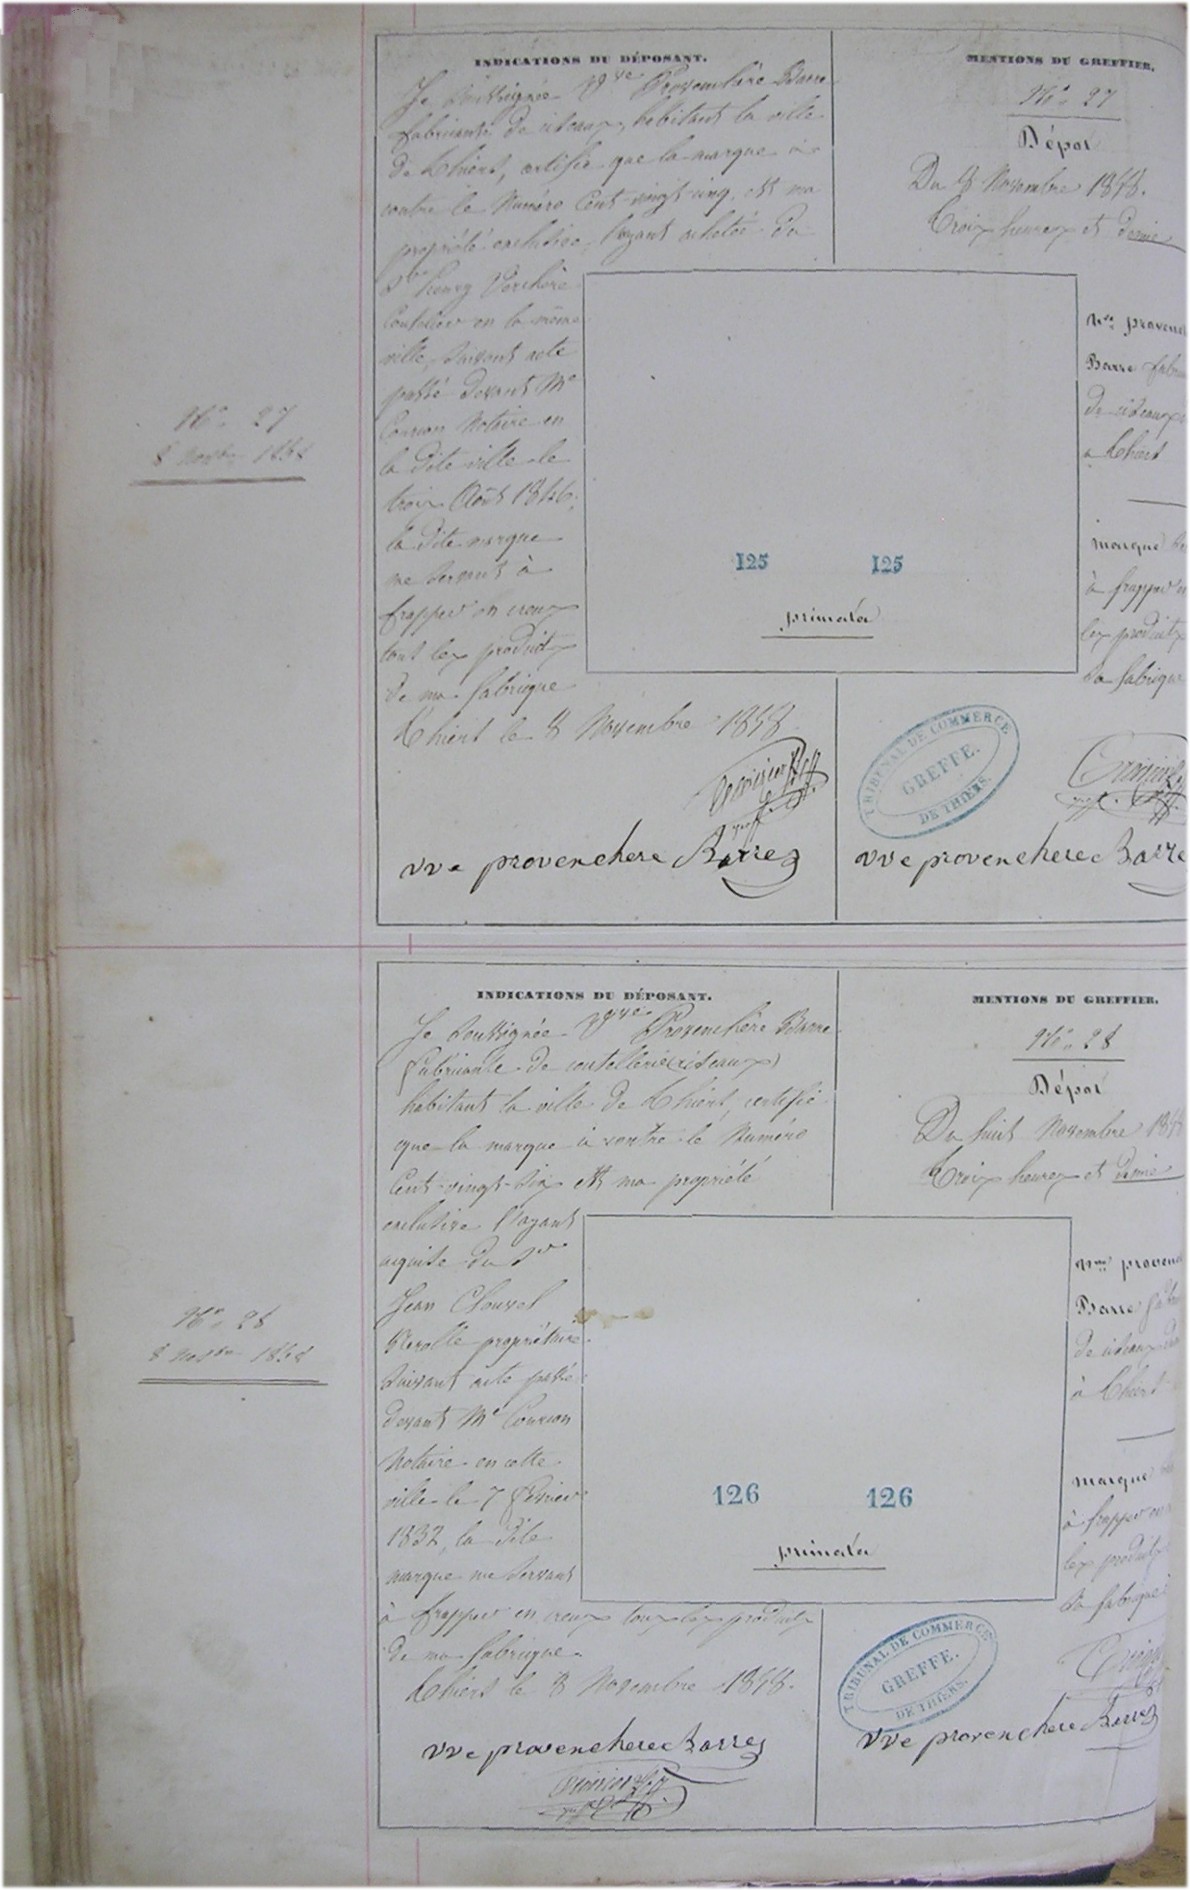 INDICATIONS DU DÉPOSANT.
Je soussignée Vve Provenchère Barre
fabricante de ciseaux, habitant la ville
de Thiers, certifie que la marque ci
contre le Numéro Cent vingt cinq, est ma
propriété exclusive, l'ayant achetée du
Sr henry Verchère
Coutelier en la même
ville, suivant acte
passé devant Me
Notaire en
la dite ville le
trois Août 1846,
la dite marque
me servant à
frapper en creux
tout les produits
de ma fabrique
Thiers le 8 Novembre 1858
vve provenchere Barre
MENTIONS DU GREFFIER.
No. 27
Dépot
Du 8 Novembre 1858.
Trois heures et demie
Vve provenc
Barre fabr
de ciseaux
a Thiers
marque
à frapper
les produits
sa fabrique
125 125
primata
TRIBUNAL DE COMMERCE
GREFFE.
DE THIERS.
vve provenchere Barre
No. 27
8 novbre 1858
INDICATIONS DU DÉPOSANT.
Je soussignée Vve Provenchère Barre
fabricante de coutellerie (ciseaux)
habitant la ville de Thiers, certifie
que la marque ci contre le Numéro
Cent-vingt-six est ma propriété
exclusive l'ayant
acquise du Sr
Jean
propriétaire
suivant acte passé
devant Me
Notaire en cette
ville le 7 février
1832, la dite
marque me servant
à frapper en creux tous les produits
de ma fabrique.
Thiers le 8 Novembre 1858.
vve provenchere Barre
MENTIONS DU GREFFIER.
No. 28
Dépot
Du huit Novembre 185
Trois heures et demie
Vve provenc
Barre
de ciseaux
à Thiers
marque
à frapper
les produits
sa fabrique
126 126
primata
TRIBUNAL DE COMMERCE
GREFFE.
DE THIERS.
vve provenchere Barre
No. 28
8 novbre 1858